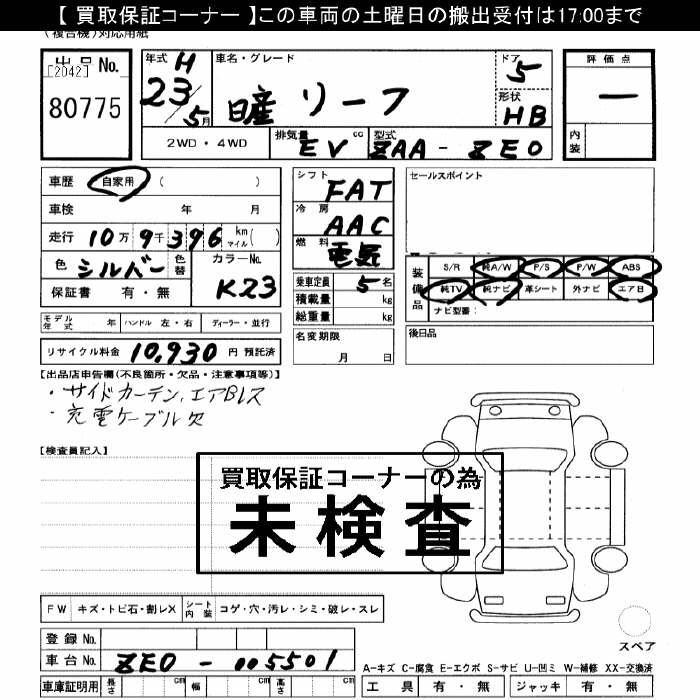 【 買取保証コーナー 】この車両の土曜日の搬出受付は17:00まで
(複合機)対応用紙
出品 No.
[2042]
80775
年式 H 23/5月
車名・グレード
日産 リーフ
ドア 5
形状 HB
評価点
ー
内装
2WD・4WD
排気量 cc EV
型式 ZAA-ZE0
車歴 自家用 ( )
車検 年 月
走行 10万9千396 km マイル( )
色 シルバー 色替 カラーNo. K23
保証書 有・無
シフト FAT
冷房 AAC
燃料 電気
乗車定員 5 名
積載量 kg
総重量 kg
セールスポイント
装備品
S/R 純A/W P/S P/W ABS
純TV 純ナビ 革シート 外ナビ エアB
ナビ型番:
モデル年式 年 ハンドル 左・右 ディーラー・並行
リサイクル料金 10,930 円 預託済
名変期限 月 日
後日品
【出品店申告欄(不良箇所・欠品・注意事項等)】
・サイドカーテン,エアBレス
・充電ケーブル欠
【検査員記入】
買取保証コーナーの為
未検査
FW キズ・トビ石・割レX シート内装 コゲ・穴・汚レ・シミ・破レ・スレ
スペア
登録 No.
車台 No. ZE0-005501
車庫証明用 長さ cm 幅 cm 高さ cm
A-キズ C-腐食 E-エクボ S-サビ U-凹ミ W-補修 XX-交換済
工具 有・無 ジャッキ 有・無